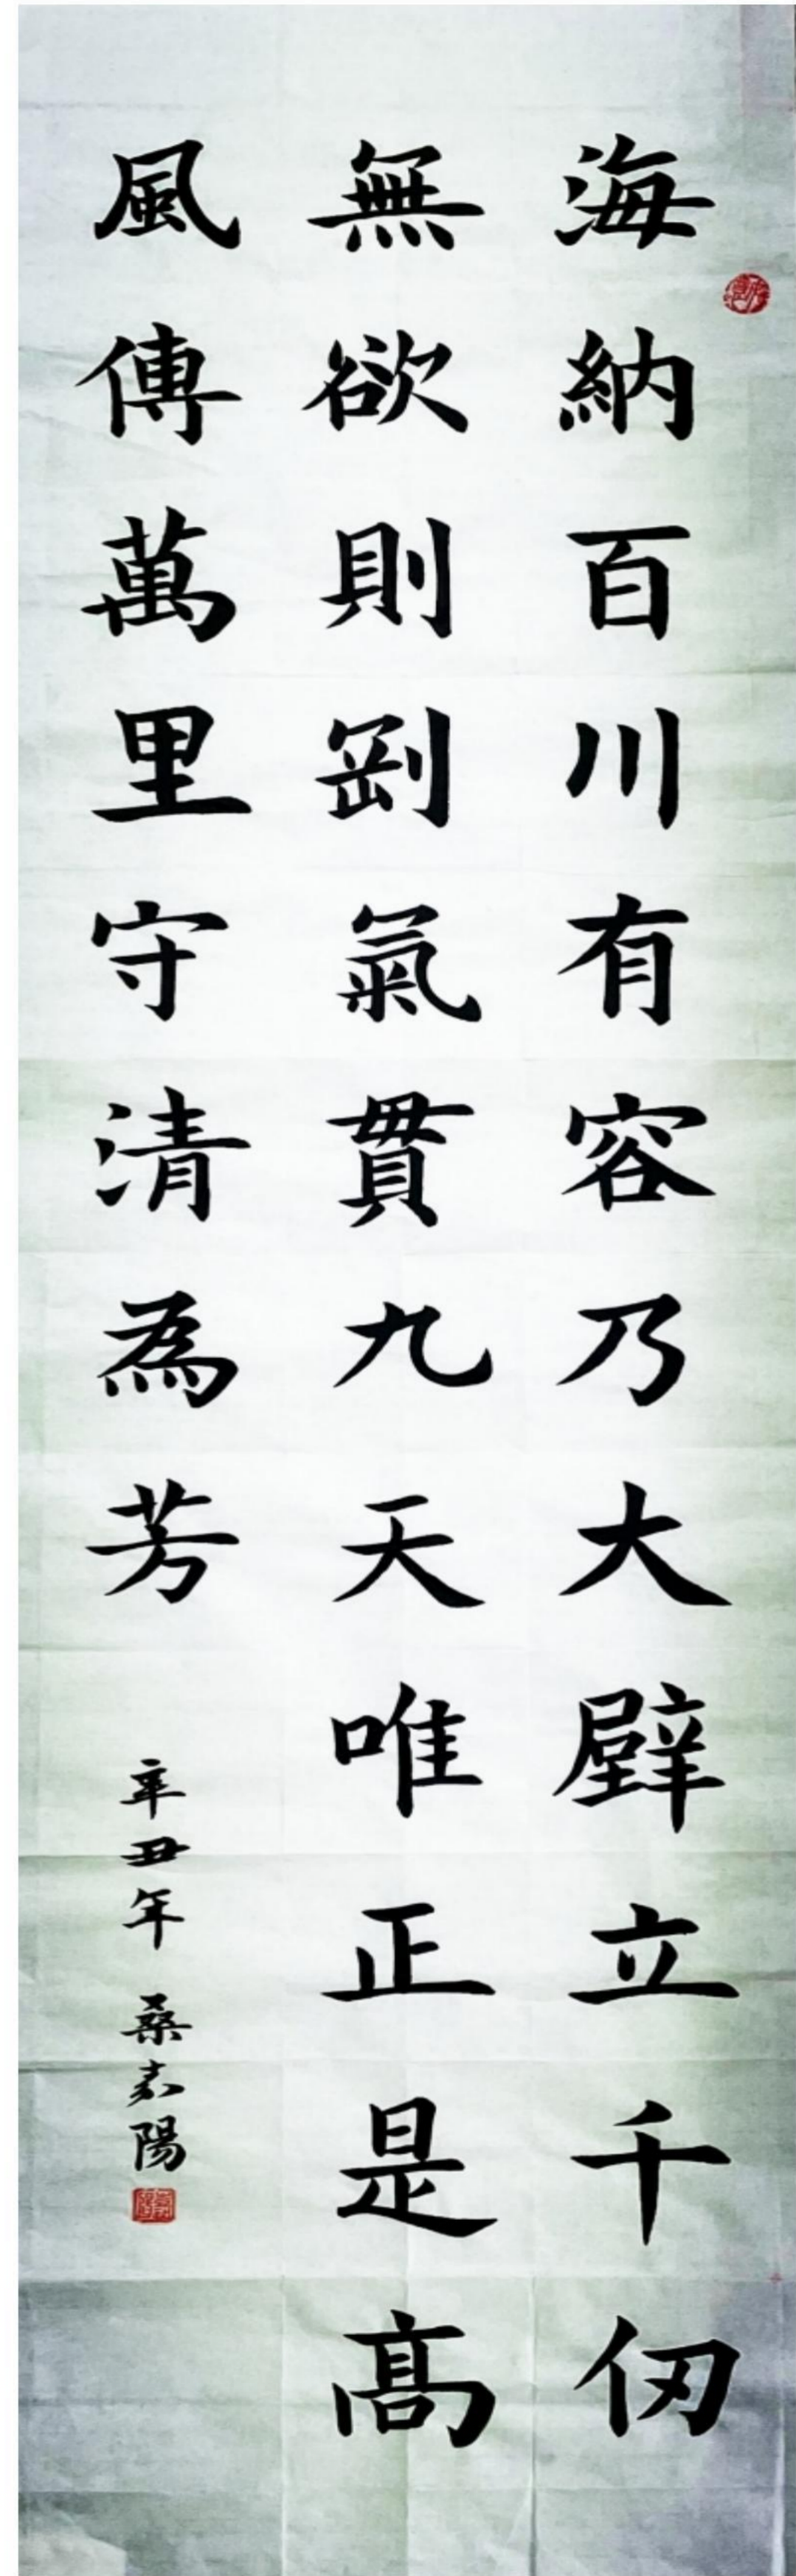 海納百川有容乃大壁立千仞
無欲則剛氣貫九天唯正是高
風傳萬里守清為芳
辛丑年 桑志陽